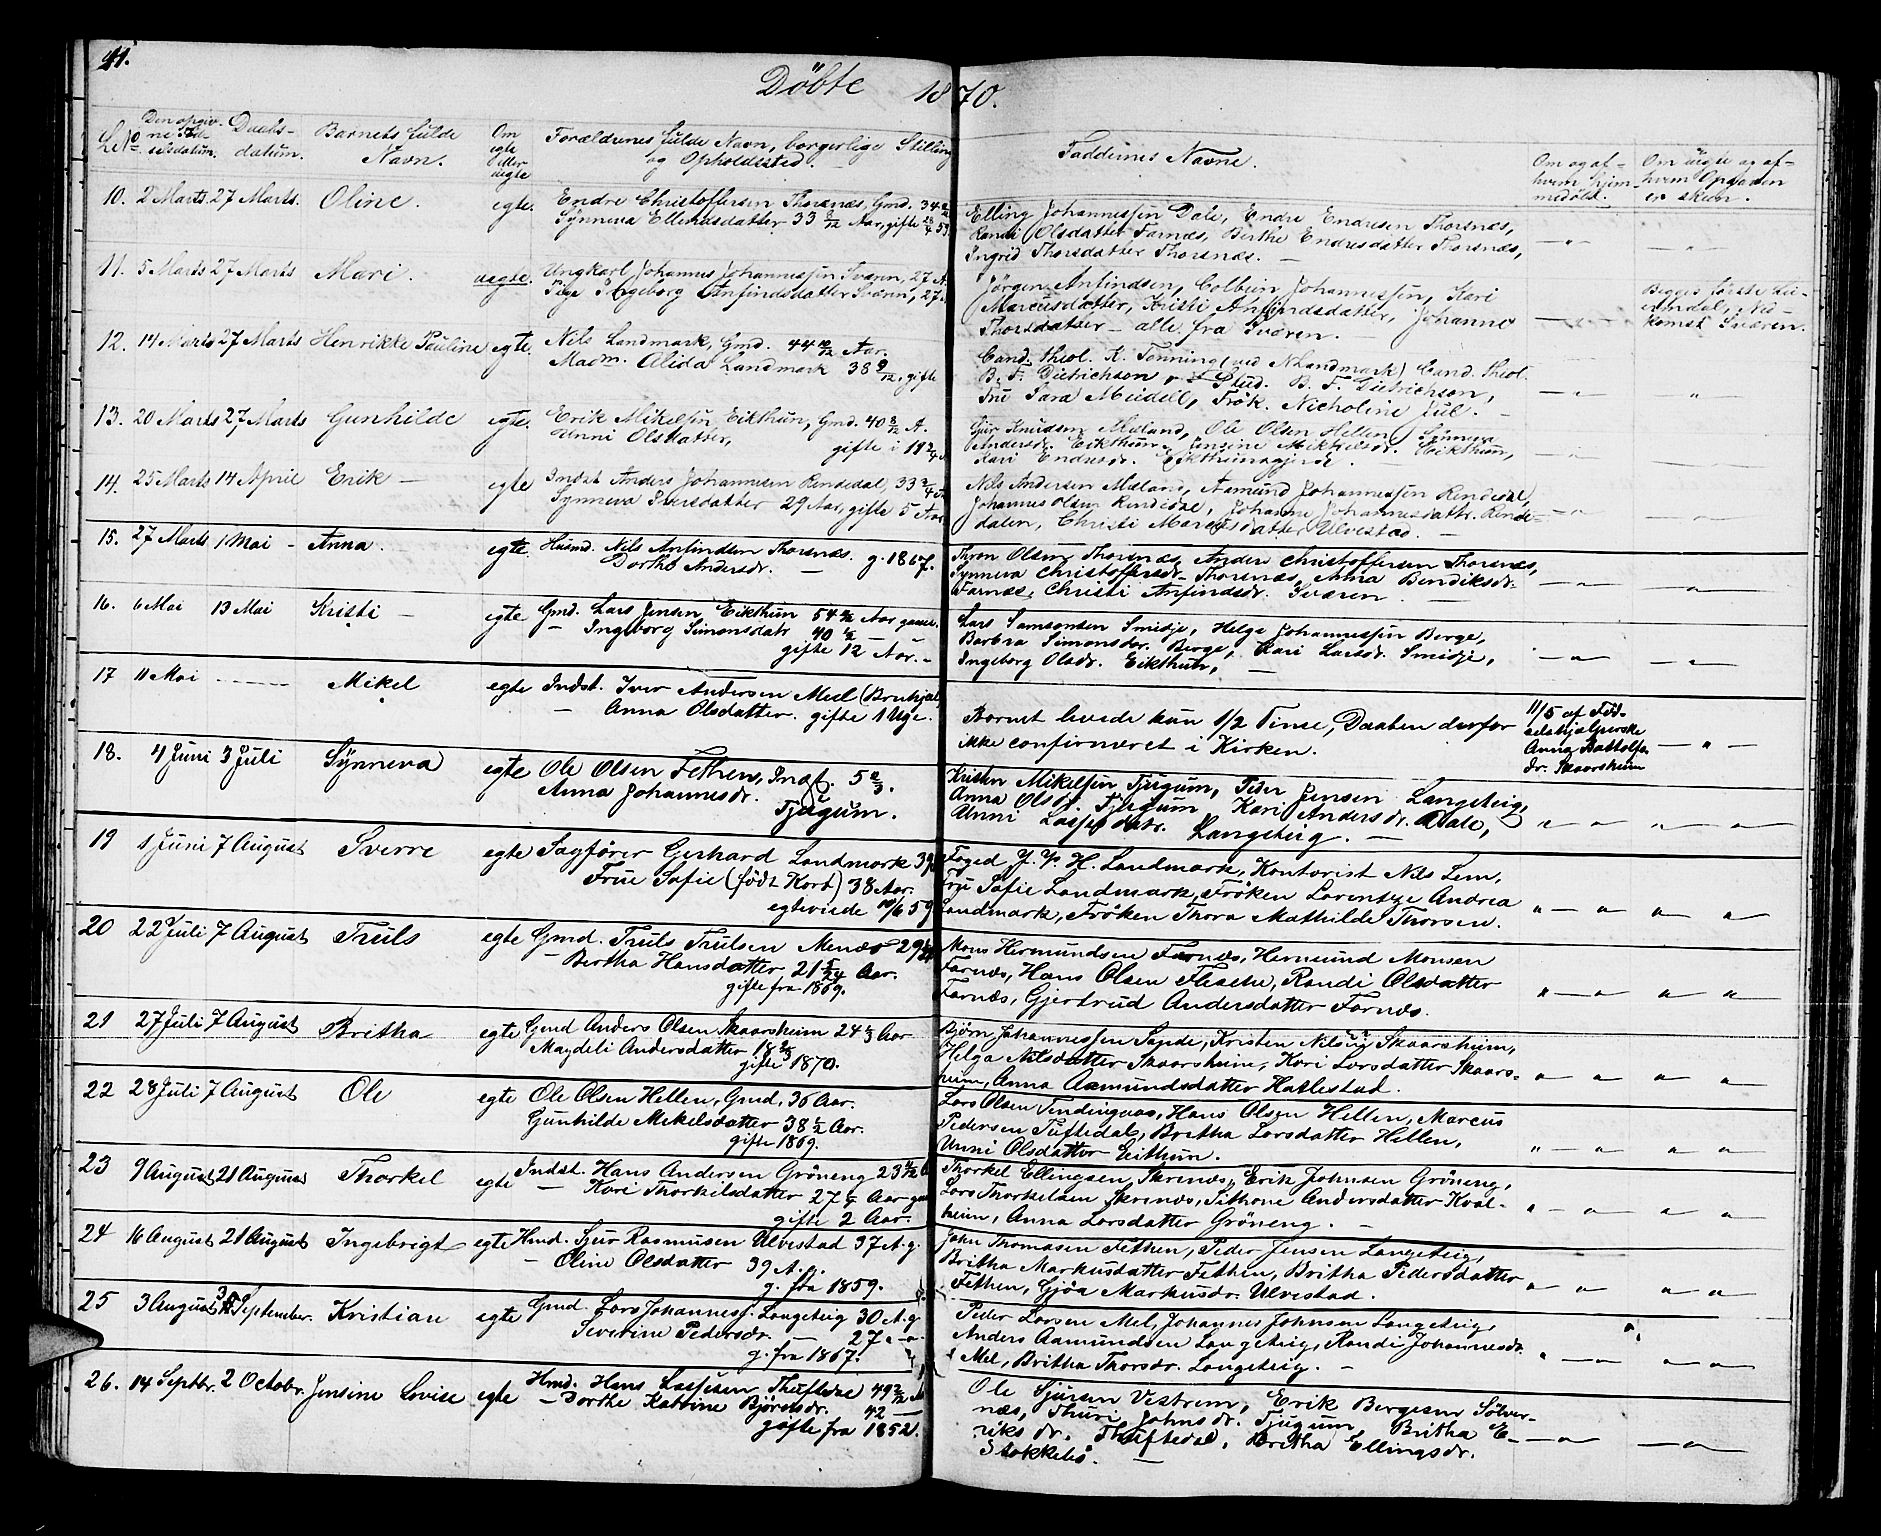 41.
Döbte 1870.
Lb. No. Den opgivne Födselsdatum. Daabsdatum. Barnets fulde Navn. Om egte eller uegte Forældrenes fulde Navn, borgerlige Stilling og Opholdssted. Faddernes Navne. Om og af hvem hjemmedöbt. Om uegte og af hvem Opgaven er skeen.
10. 2 Marts. 27 Marts. Oline. egte. Endre Christoffersen Thorsnæs, Gmd. 34
Synneva Ellendsdatter 33 8/12 Aar, gifte
Elling Johannessen Dale, Endre Endresen Thorsnæs,
Randi Olsdatter Farnæs, Berthe Endresdatter Thorsnæs,
Ingrid Thorsdatter Thorsnæs. —
11. 5 Marts 27 Marts Mari. uegte. Ungkarl Johannes Johannessen Sværen, 27 A.
Pige Ingeborg Anfindsdatter Sværen, 27
Jörgen Anfindsen, Colbein Johannessen, Kari
Marcusdatter, Kristi Anfindsdatter, Johanne
Thorsdatter — alle fra Sværen. —
Begges förste Leiermaal, Nedkomst Sværen.
12. 14 Marts 27 Marts Henrikke Pauline egte. Nils Landmark, Gmd. 44 10/12 Aar.
Madm. Alida Landmark 38 9/12, gifte
Cand. theol. K. Tönning (ved N Landmark) Cand. theol.
B. F. Dietrichson v. Stud. B. F. Dietrichson,
Fru Sara Meidell, Frök. Nicholine Juul. —
13. 20 Marts 27 Marts Gunhilde egte. Erik Mikelsen Eikthun, Gmd. 40 8/12 A.
Unni Olsdatter, gifte i 11 3/4
Gjur Knudsen Mæland, Ole Olsen Hellen, Synneva
Andersdr. Eikthun, Jensine Mikkelsdr. Eikthun,
Kari Endresdr. Eikthunsgjerde.
14. 25 Marts 14 April Erik — egte Indst Anders Johannesen Rendedal, 33 3/4
Synneva Iversdatter 29 Aar, gifte 5 Aar.
Nils Andersen Mæland, Aamund Johannessen Rendedal,
Johannes Olsen Rendedal, Johanne Johannesdattr. Rende-
dalen, Christi Marcusdatter Ulvestad. —
15. 27 Marts 1 Mai — Anna. egte. Husmd. Nils Anfindsen Thorsnæs. g. 1867.
Dorthe Andersdr. —
Thron Olsen Thorsnæs, Anders Christoffersen Thorsnæs,
Synneva Christoffersdr. Thorsnæs, Anna Bendiksdr.
Farnæs, Christi Anfindsdr. Sværen. —
16. 6 Mai 13 Mai Kristi — egte Gmd. Lars Jensen Eikthun 54 Aar gamle.
— Ingeborg Simonsdatr 40 1/2 —
gifte 12 Aar. —
Lars Samsonsen Smidje, Helge Johannessen Berge,
Barbra Simonsdr. Berge, Kari Larsdr. Smidje,
Ingeborg Olsdr. Eikthun, —
17 11 Mai — Mikel egte Indst. Iver Andersen Mel
— Anna Olsdatter. gifte 1 Uge.
Barnet levede kun 1/2 Time, Daaben derfor
ikke confirmeret i Kirken.
11/5 af Födselshjælperske Anna Battolfsdr. Skaarsheim
18. 4 Juni 3 Juli Synneva egte Ole Olsen Fethen, Indst.
Anna Johannesdr. Tjugum.
Kristen Mikelsen Tjugum, Peder Jensen Langeteig,
Anna Olsdr. Tjugum Kari Andersdr. Dale,
Unni Lassesdatr. Langeteig. —
19 1 Juni 7 August Sverre egte Sagförer Gerhard Landmark 39
Frue Safie (födt Kort) 38 Aar.
egteviede 10/6 59
Foged J. P. H. Landmark, Kontorist Nils Lem,
Fru Safie Landmark, Fröken Lorentze Andrea
Landmark, Fröken Thora Mathilde Thorsen.
20 22 Juli 7 August Truls egte Gmd. Truls Trulsen Menæs 29
— Bertha Hansdatter 21 5/24 Aar.
gifte fra 1869.
Mons Hermundsen Farnæs, Hermund Monsen
Farnæs, Hans Olsen Flesche, Randi Olsdatter
Farnæs, Gjertrud Andersdatter Farnæs.
21 27 Juli 7 August Britha egte Gmd Anders Olsen Skaarsheim 24 Aar
Magdeli Andersdatter 18
gifte 1870.
Björn Johannessen Sande, Kristen Nilsen Skaarsheim,
Helga Nilsdatter Skaarsheim, Kari Larsdatter Skaars-
heim, Anna Aamundsdatter Hatlestad.
22 28 Juli 7 August Ole egte Ole Olsen Hellen, Gmd, 36 Aar.
Gunhilde Mekelsdatter 38 1/2 Aar.
gifte 1869.
Lars Olsen Tendingaas, Hans Olsen Hellen, Marcus
Pedersen Tuftedal, Britha Larsdatter Hellen,
Unni Olsdatter Eithun.
23 9 August 21 August Thorkel egte Indst. Hans Andersen Gröneng 23
— Kari Thorkilsdatter 27 Aar
gifte 2 Aar.
Thorkel Ellingsen Skrenæs, Erik Johnsen Gröneng,
Lars Thorkelsen Skrenæs, Sithone Andersdatter Kval-
heim, Anna Larsdatter Gröneng. —
24 16 August 21 August Ingebrigt egte Hmd. Sjur Rasmusen Ulvestad 37 A. g.
— Oline Olsdatter 39 A. g.
g. fra 1859.
John Thomasen Fethen, Peder Jensen Langeteig,
Britha Markusdatter Fethen, Britha Pedersdatter
Fethen, Gjöa Markusdr. Ulvestad.
25 3 August September. Kristian egte Gmd. Lars Johanness. Langeteig 30 A. g.
Severine Pedersdr. — 27
g. fra 1867.
Peder Larsen Mel, Johannes Johnsen Langeteig,
Anders Aamundsen Langeteig, Randi Johannesdr.
Mel, Britha Thorsdr. Langeteig. —
26. 14 Septbr. 2 Octobr. Jensine Lovise egte Hmd. Hans Lassesen Thuftedal 49
— Dorthe Katrine Björnsdr. 42 —
gifte fra 1852.
Ole Sjursen Vestrem, Erik Bergesen Sölver-
næs, Thuri Johnsdr. Tjugum, Britha E-
riks dr. Thuftedal, Britha Ellingsdr.
Stokkebö. —